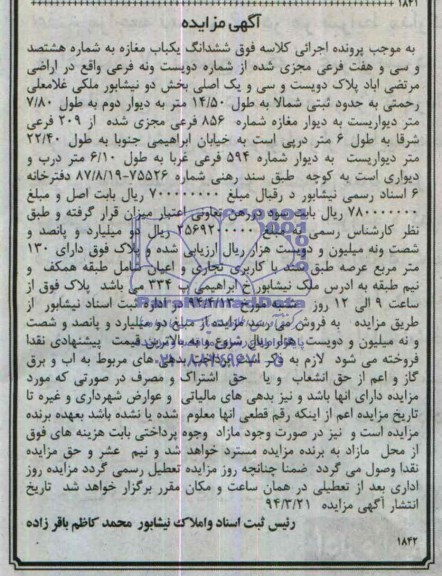 ۱۸۴۱
آگهی مزایده
به موجب پرونده اجرائی کلاسه فوق ششدانگ یکباب مغازه به شماره هشتصد
و سی و هفت فرعی مجزی شده از شماره دویست ونه فرعی واقع در اراضی
مرتضی اباد پلاک دویست و سی و یک اصلی بخش دو نیشابور ملکی غلامعلی
رحمتی به حدود ثبتی شمالا به طول ۱۴/۵۰ متر به دیوار دوم به طول ۷/۸۰
متر دیواریست به دیوار مغازه شماره ۸۵۶ فرعی مجزی شده از ۲۰۹ فرعی
شرقا به طول ۶ متر درپی است به خیابان ابراهیمی جنوبا به طول ۲۲/۴۰
متر دیواریست به دیوار شماره ۵۹۴ فرعی غربا به طول ۶/۱۰ متر درب و
دیواری است به کوچه طبق سند رهنی شماره ۷۵۵۲۶-۸۷/۸/۱۹ دفترخانه
۶ اسناد رسمی نیشابور در قبال مبلغ ۷۰۰۰۰۰۰۰۰ ریال بابت اصل و مبلغ
۷۸۰۰۰۰۰۰۰ ریال بابت سود در رهن تعاونی اعتبار میزان قرار گرفته و طبق
نظر کارشناس رسمی به مبلغ ۲۵۶۹۲۰۰۰۰۰ ریال دو میلیارد و پانصد و
شصت ونه میلیون و دویست هزار ریال ارزیابی شده و پلاک فوق دارای ۱۳۰
متر مربع عرصه طبق سند با کاربری تجاری و اعیان شامل طبقه همکف و
نیم طبقه به ادرس ملک نیشابور خ ابراهیمی پ ۳۳۴ می باشد پلاک فوق از
ساعت ۹ الی ۱۲ روز شنبه مورخ ۹۴/۴/۱۳ در اداره ثبت اسناد نیشابور از
طریق مزایده به فروش می رسد مزایده از مبلغ دو میلیارد و پانصد و شصت
و نه میلیون و دویست هزار ریال شروع و به بالاترین قیمت پیشنهادی نقدا
فروخته می شود لازم به ذکر است پرداخت بدهی های مربوط به اب و برق
گاز و اعم از حق انشعاب و یا حق اشتراک و مصرف در صورتی که مورد
مزایده دارای انها باشد و نیز بدهی های مالیاتی و عوارض شهرداری و غیره تا
تاریخ مزایده اعم از اینکه رقم قطعی انها معلوم شده یا نشده باشد بعهده برنده
مزایده است و نیز در صورت وجود مازاد وجوه پرداختی بابت هزینه های فوق
از محل مازاد به برنده مزایده مسترد خواهد شد و نیم عشر و حق مزایده
نقدا وصول می گردد ضمنا چنانچه روز مزایده تعطیل رسمی گردد مزایده روز
اداری بعد از تعطیلی در همان ساعت و مکان مقرر برگزار خواهد شد تاریخ
انتشار آگهی مزایده ۹۴/۳/۲۱
رئیس ثبت اسناد واملاک نیشابور محمد کاظم باقر زاده
۱۸۴۲